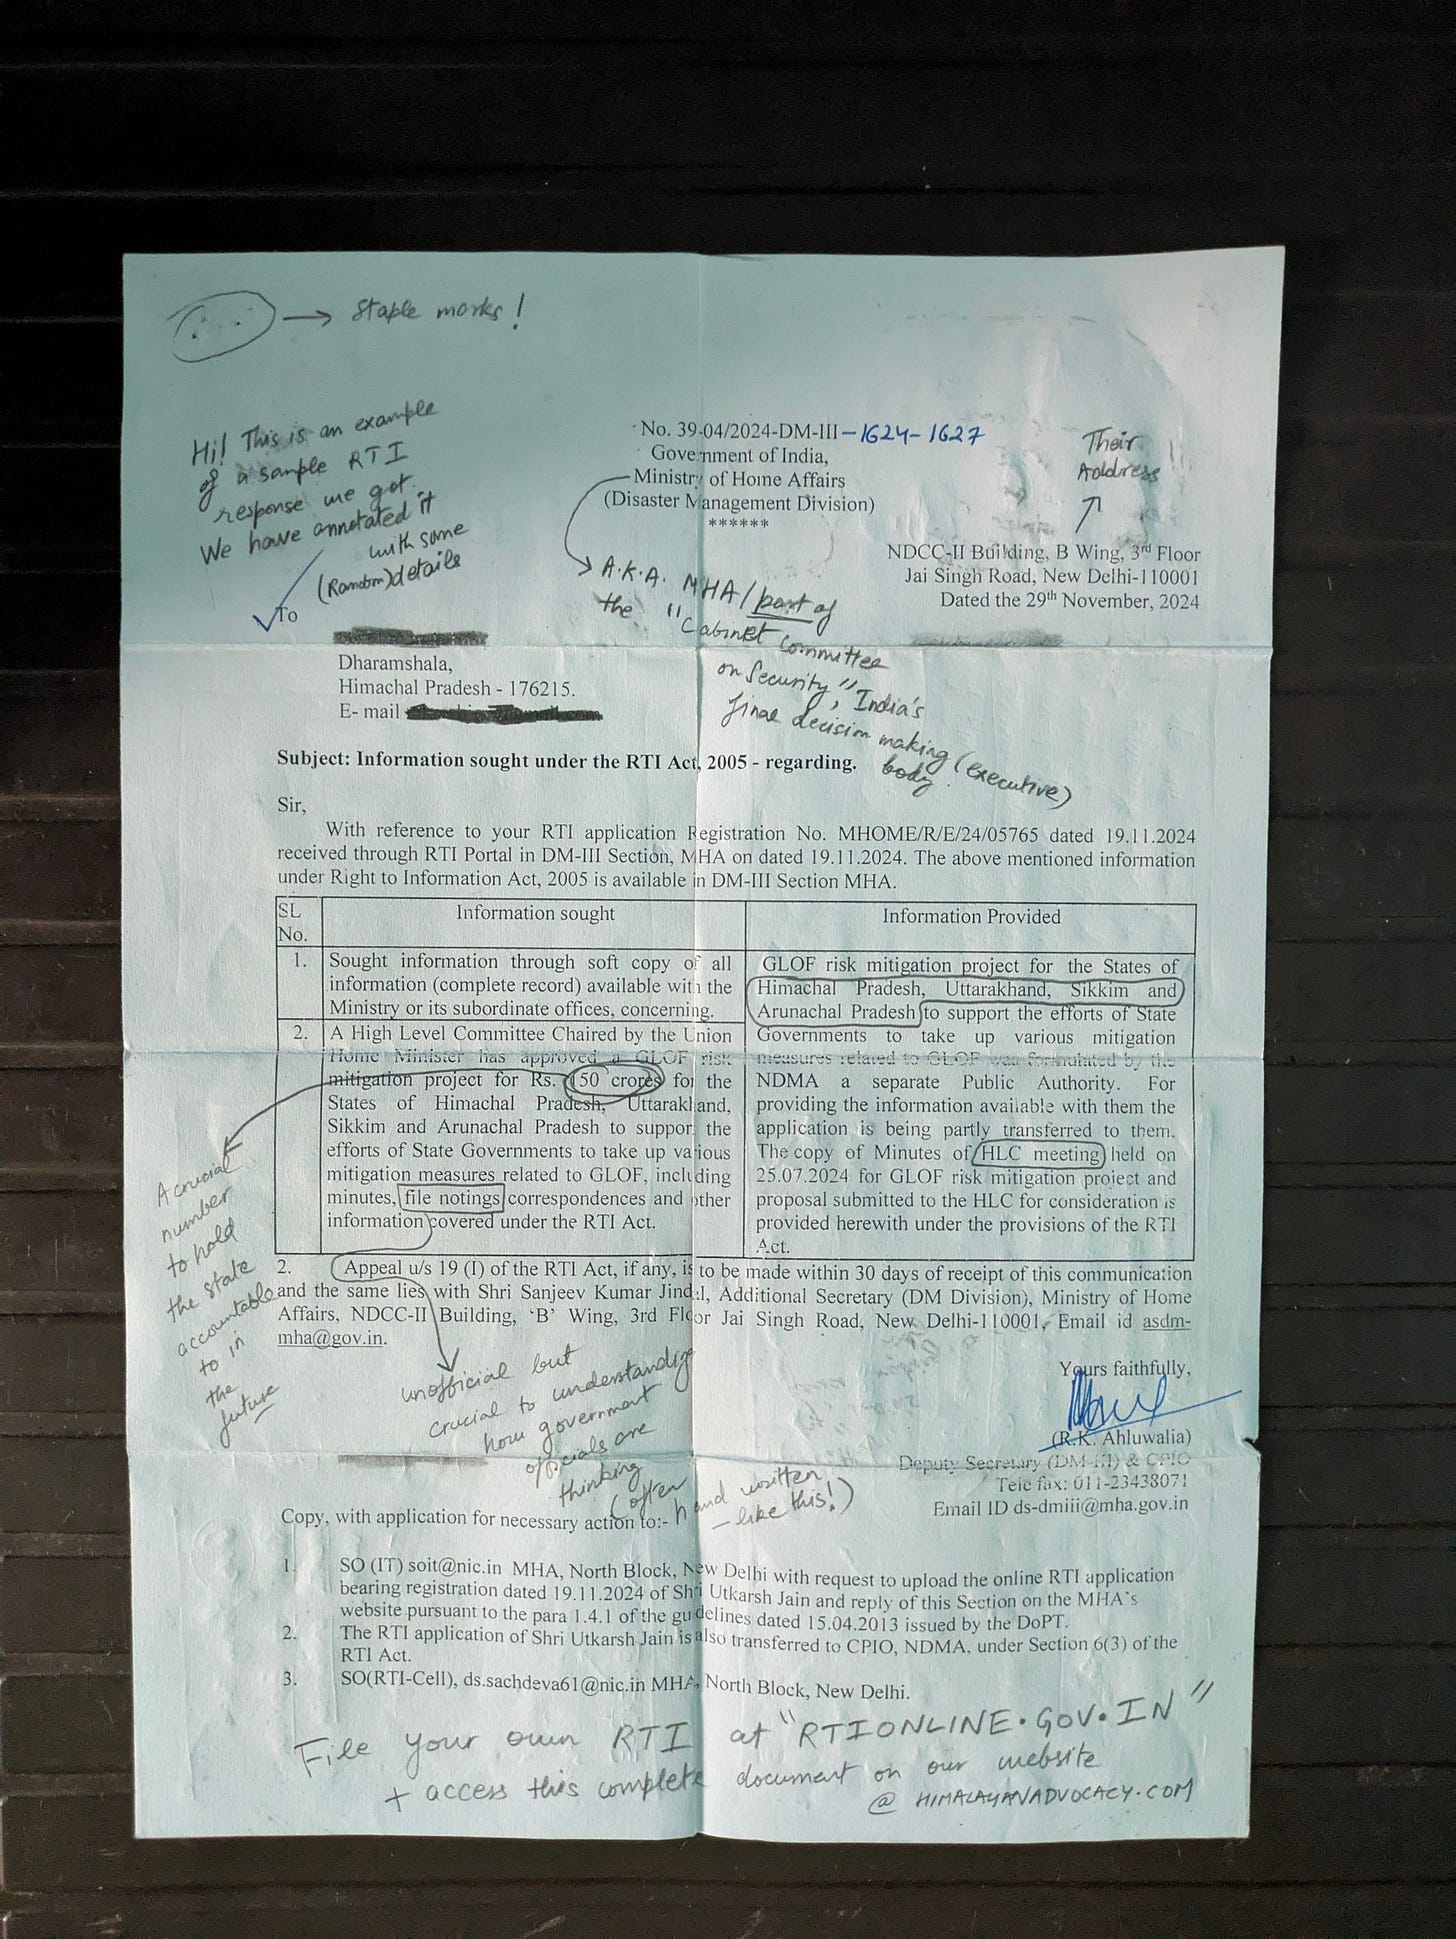 → Staple marks!
Hi! This is an example
of a sample RTI
response we got.
We have annotated it
with some
(Random) details
No. 39-04/2024-DM-III-1624-1627
Government of India,
Ministry of Home Affairs
(Disaster Management Division)
******
Their
Address
NDCC-II Building, B Wing, 3rd Floor
Jai Singh Road, New Delhi-110001
Dated the 29th November, 2024
A.K.A. MHA/part of
the "Cabinet Committee
on Security", India's
final decision making (executive)
body.
To
Dharamshala,
Himachal Pradesh - 176215.
E- mail
Subject: Information sought under the RTI Act, 2005 - regarding.
Sir,
With reference to your RTI application Registration No. MHOME/R/E/24/05765 dated 19.11.2024
received through RTI Portal in DM-III Section, MHA on dated 19.11.2024. The above mentioned information
under Right to Information Act, 2005 is available in DM-III Section MHA.
SL
No.
Information sought
Information Provided
1.
Sought information through soft copy of all
information (complete record) available with the
Ministry or its subordinate offices, concerning.
2.
A High Level Committee Chaired by the Union
Home Minister has approved a GLOF risk
mitigation project for Rs. 150 crores for the
States of Himachal Pradesh, Uttarakhand,
Sikkim and Arunachal Pradesh to support the
efforts of State Governments to take up various
mitigation measures related to GLOF, including
minutes, file notings correspondences and other
information covered under the RTI Act.
GLOF risk mitigation project for the States of
Himachal Pradesh, Uttarakhand, Sikkim and
Arunachal Pradesh to support the efforts of State
Governments to take up various mitigation
measures related to GLOF was formulated by the
NDMA a separate Public Authority. For
providing the information available with them the
application is being partly transferred to them.
The copy of Minutes of HLC meeting held on
25.07.2024 for GLOF risk mitigation project and
proposal submitted to the HLC for consideration is
provided herewith under the provisions of the RTI
Act.
A crucial
number
to hold
the state
accountable
to in
the
future
2. Appeal u/s 19 (I) of the RTI Act, if any, is to be made within 30 days of receipt of this communication
and the same lies with Shri Sanjeev Kumar Jindal, Additional Secretary (DM Division), Ministry of Home
Affairs, NDCC-II Building, 'B' Wing, 3rd Floor Jai Singh Road, New Delhi-110001, Email id asdm-
mha@gov.in.
unofficial but
crucial to understanding
how government
officials are
thinking
(often hand written
– like this!)
Yours faithfully,
(R.K. Ahluwalia)
Deputy Secretary (DM-III) & CPIO
Tele fax: 011-23438071
Email ID ds-dmiii@mha.gov.in
Copy, with application for necessary action to:-
1. SO (IT) soit@nic.in MHA, North Block, New Delhi with request to upload the online RTI application
bearing registration dated 19.11.2024 of Shri Utkarsh Jain and reply of this Section on the MHA's
website pursuant to the para 1.4.1 of the guidelines dated 15.04.2013 issued by the DoPT.
2. The RTI application of Shri Utkarsh Jain is also transferred to CPIO, NDMA, under Section 6(3) of the
RTI Act.
3. SO(RTI-Cell), ds.sachdeva61@nic.in MHA, North Block, New Delhi.
File your own RTI at "RTIONLINE.GOV.IN"
+ access this complete document on our website
@ HIMALAYANADVOCACY.COM